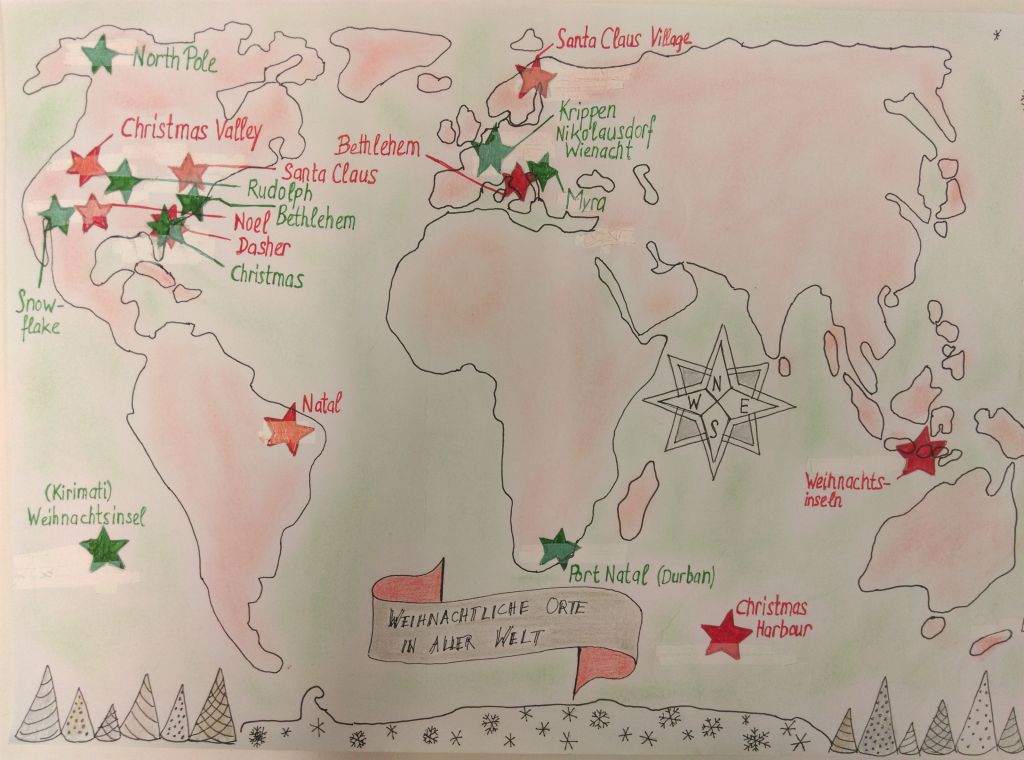 Santa Claus Village
North Pole
Christmas Valley
Krippen
Nikolausdorf
Wienacht
Bethlehem
Santa Claus
Rudolph
Myra
Noel
Bethlehem
Dasher
Christmas
Snow-
flake
N
W E
S
Natal
(Kirimati)
Weihnachtsinsel
Weihnachts-
inseln
Port Natal (Durban)
Christmas
Harbour
WEIHNACHTLICHE ORTE
IN ALLER WELT